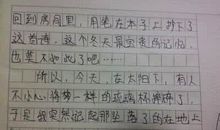 回到房间里，用笔在本子上抄下了
这首诗。这个冬天最宝贵的记忆，
也莫不如此了吧……
所以，今天，在太阳下，有人
不小心将梦一样的玻璃杯摔碎了，
于是我突然记起那坠落了的在地上